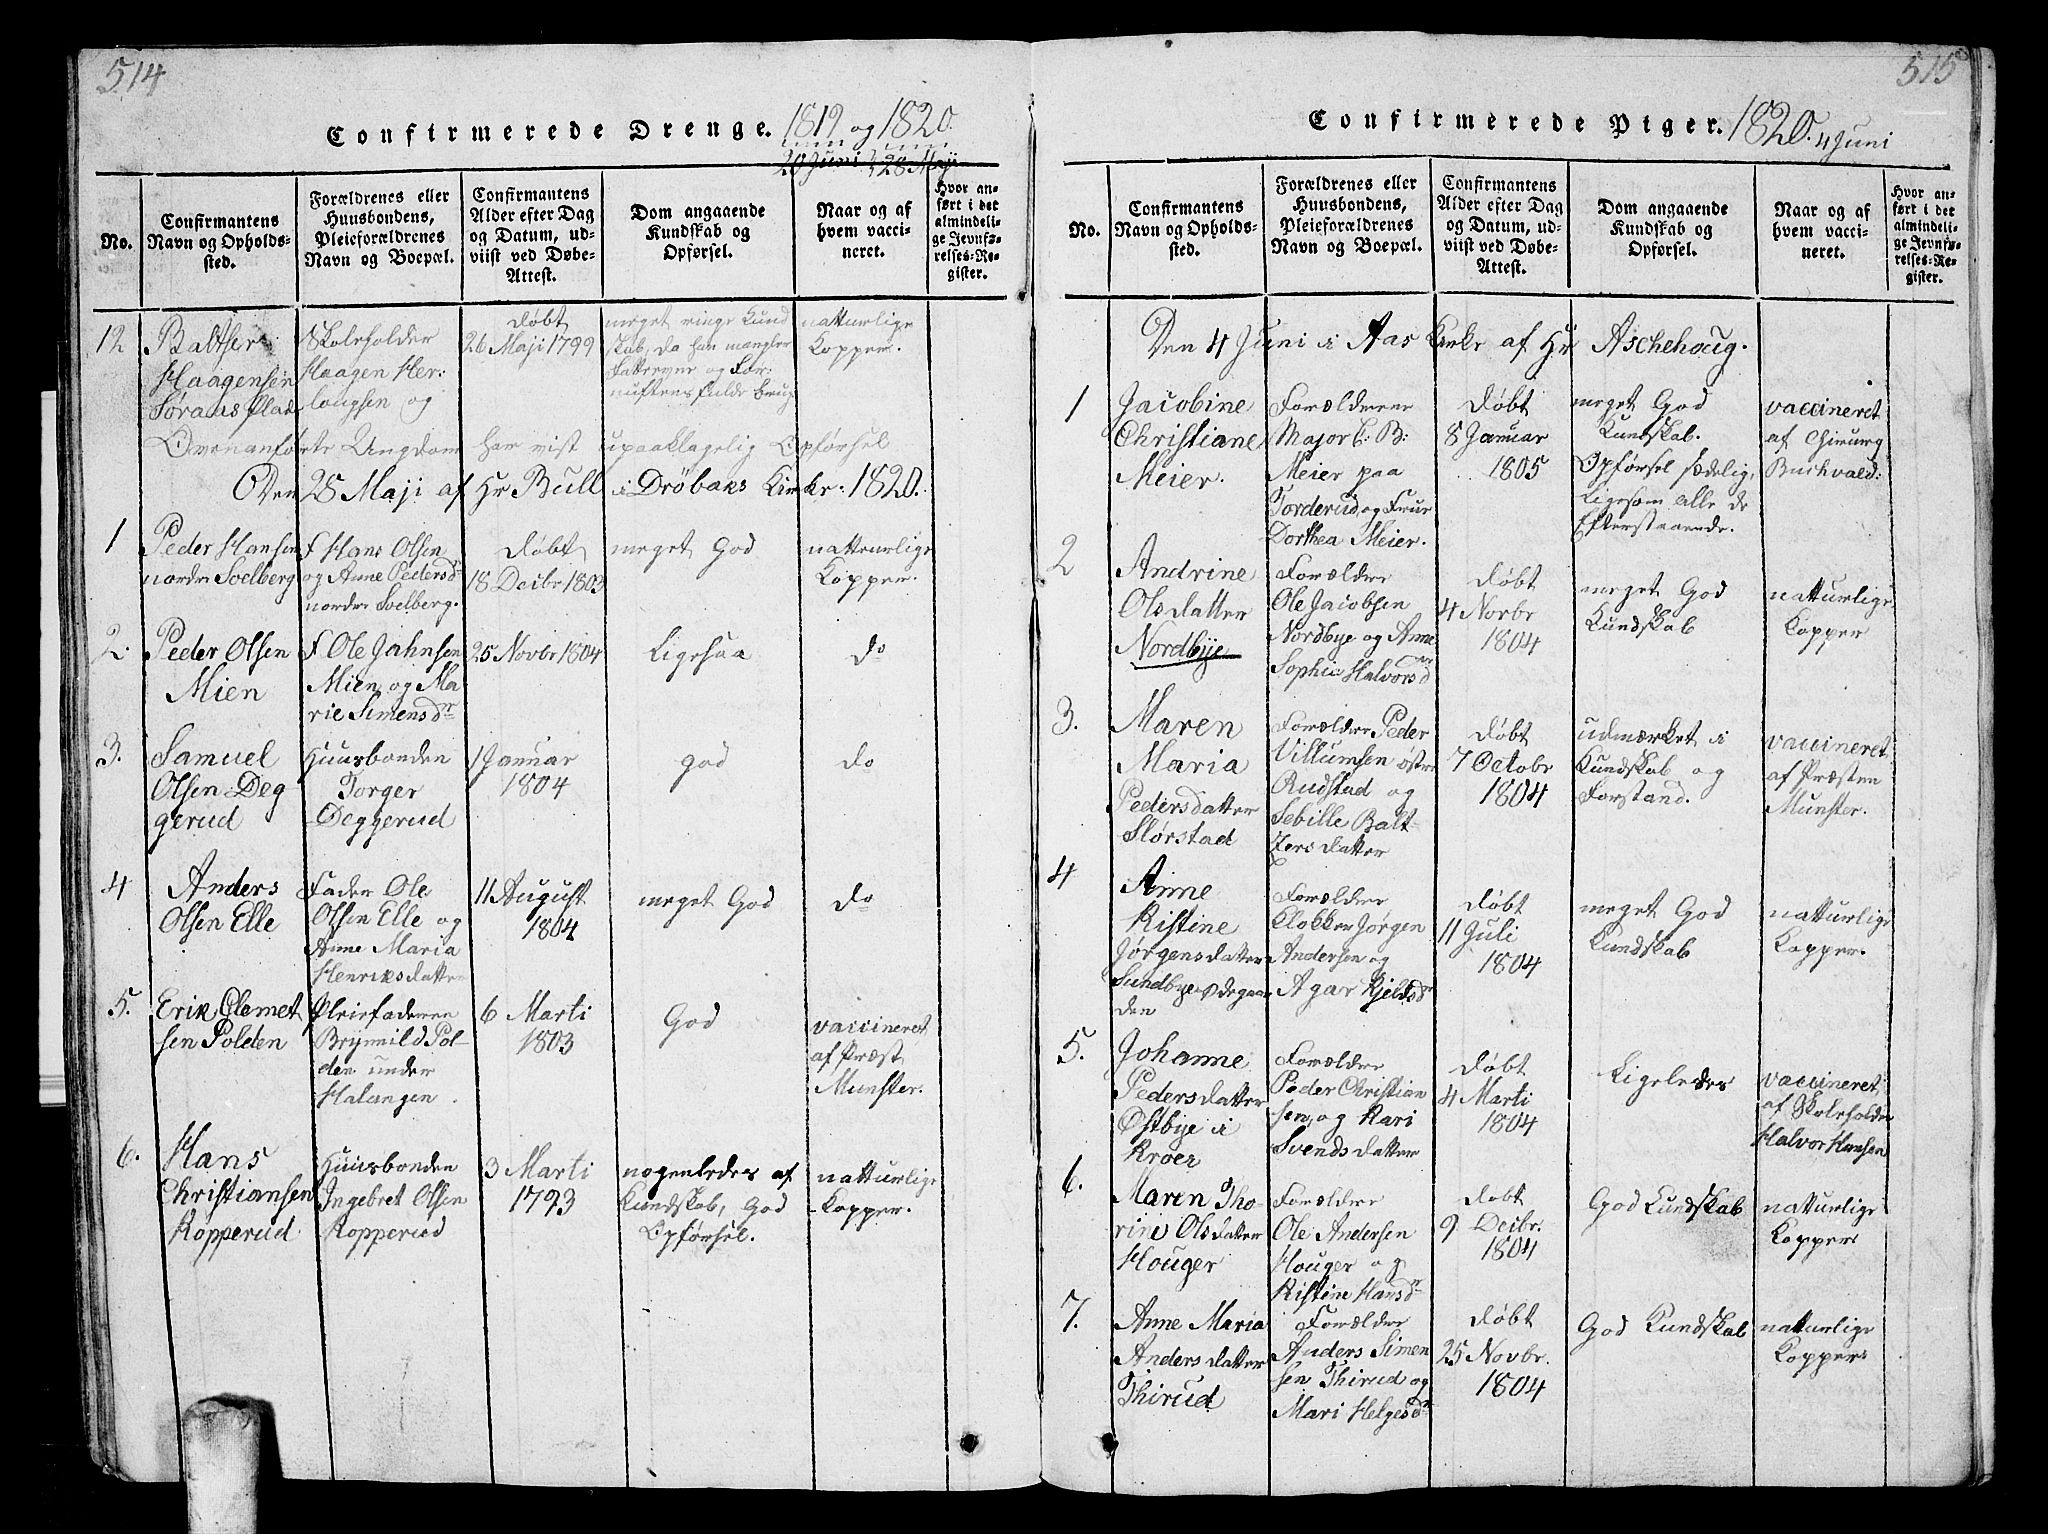 514
Confirmerede Drenge. 1819 og 1820.
20 Juni & 28 Maji
No.
Confirmantens
Navn og Opholds-
sted.
Forældrenes eller
Huusbondens,
Pleieforældrenes
Navn og Boepæl.
Confirmantens
Alder efter Dag
og Datum, ud-
viist ved Døbe-
Attest.
Dom angaaende
Kundskab og
Opførsel.
Naar og af
hvem vacci-
neret.
Hvor an-
ført i det
almindeli-
ge Jevnfø-
relses-Re-
gister.
12
Baltser
Haagensen
Søraas Plad
Skoleholder
Haagen Her-
lougsen og
døbt
26 Maji 1799
meget ringe Kund
skab, da han mangler
Fatteevne og For-
nuftens fulde brug
naturlige
Kopper.
Ovenanførte Ungdom har vist upaaklagelig Opførsel
Den 28 Maji af Hr Bull i Drøbaks Kirke. 1820.
1
Peder Hansen
nordre Solberg
F Hans Olsen
og Anne Pedersdr
nordre Solberg.
døbt
18 Decbr 1803
meget God
natturlige
Kopper.
2.
Peder Olsen
Mien
F Ole Jahnsen
Mien og Ma
rie Simensdr
25 Novbr 1804
Ligesaa
do
3.
Samuel
Olsen Deg
gerud
Huusbonden
Torger
Deggerud
1 Januar
1804
god
do
4
Anders
Olsen Elle
Fader Ole
Olsen Elle og
Anne Maria
Henriksdatter
11 August
1804
meget God
do
5.
Erik Clemet
sen Polden
Pleiefaderen
Brynild Pol-
den under
Halangen.
6 Marti
1803
God
vaccineret
af Præst
Munster.
6.
Hans
Christiansen
Kopperud
Huusbonden
Ingebret Olsen
Kopperud
3 Marti
1793
nogenledes af
Kundskab, God
Opførsel.
natturlige
Kopper.
515
Confirmerede Piger. 1820. 4 Juni
No.
Confirmantens
Navn og Opholds-
sted.
Forældrenes eller
Huusbondens,
Pleieforældrenes
Navn og Boepæl.
Confirmantens
Alder efter Dag
og Datum, ud-
viist ved Døbe-
Attest.
Dom angaaende
Kundskab og
Opførsel.
Naar og af
hvem vacci-
neret.
Hvor an-
ført i det
almindeli-
ge Jevnfø-
relses-Re-
gister.
Den 4 Juni i Aas Kirke af Hr Aschehoug.
1
Jacobine
Christiane
Meier.
Forældrene
Major C: B:
Meier paa
Torderud og Frue
Dorthea Meier.
døbt
8 Januar
1805
meget God
Kundskab.
Opførsel sædelig,
Ligesom alle de
Efterstaaende.
vaccineret
af Chirurg
Buchvald:
2
Andrine
Olsdatter
Nordbye
Forældre
Ole Jacobsen
Nordbye og Anne
Sophie Halvorsd
døbt
4 Novbr
1804
meget God
Kundskab
natturlige
Kopper
3.
Maren
Maria
Pedersdatter
Slørstad
Forældre Peder
Villumsen østre
Rudstad og
Sebille Balt-
zersdatter
døbt
7 Octobr
1804
udmærket i
Kundskab og
Forstand.
vaccineret
af Præsten
Munster.
4
Anne
Kistine
Jørgensdatter
Sundbye ødegaar
den
Forældre
Klokker Jørgen
Andersen og
Agar Kjeldsdr
døbt
11 Juli
1804
meget God
Kundskab
natturlige
Kopper.
5.
Johanne
Pedersdatter
Østbye i
Kroer
Forældre
Peder Christian
sen, og Kari
Svendsdatter
døbt
4 Marti
1804
Ligeledes
vaccineret
af Skoleholder
Halvor Hansen
6.
Maren Tho-
rine Olsdatter
Houger
Forældre
Ole Andersen
Houger og
Kistine Hansdr
døbt
9 Decbr.
1804
God Kundskab
natturlige
Kopper
7.
Anne Maria
Andersdatter
Thirud
Forældre
Anders Simen
sen Thirud og
Mari Helgesdr
døbt
25 Novbr.
1804
God Kundskab
natturlige
Kopper